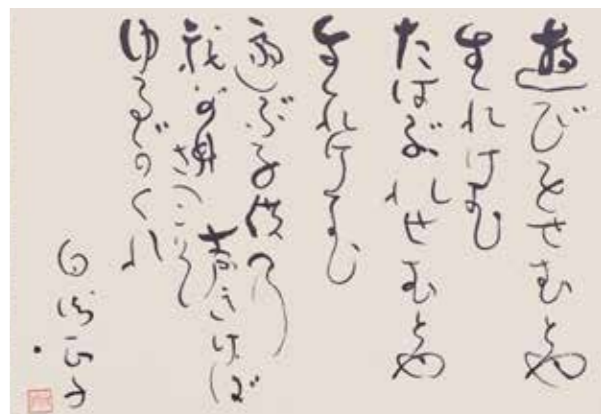 遊びをせむとや
生れけむ
たはぶれせむとや
生れけむ
遊ぶ子供の
声きけば
我が身さへこそ
ゆるがるれ
白洲正子